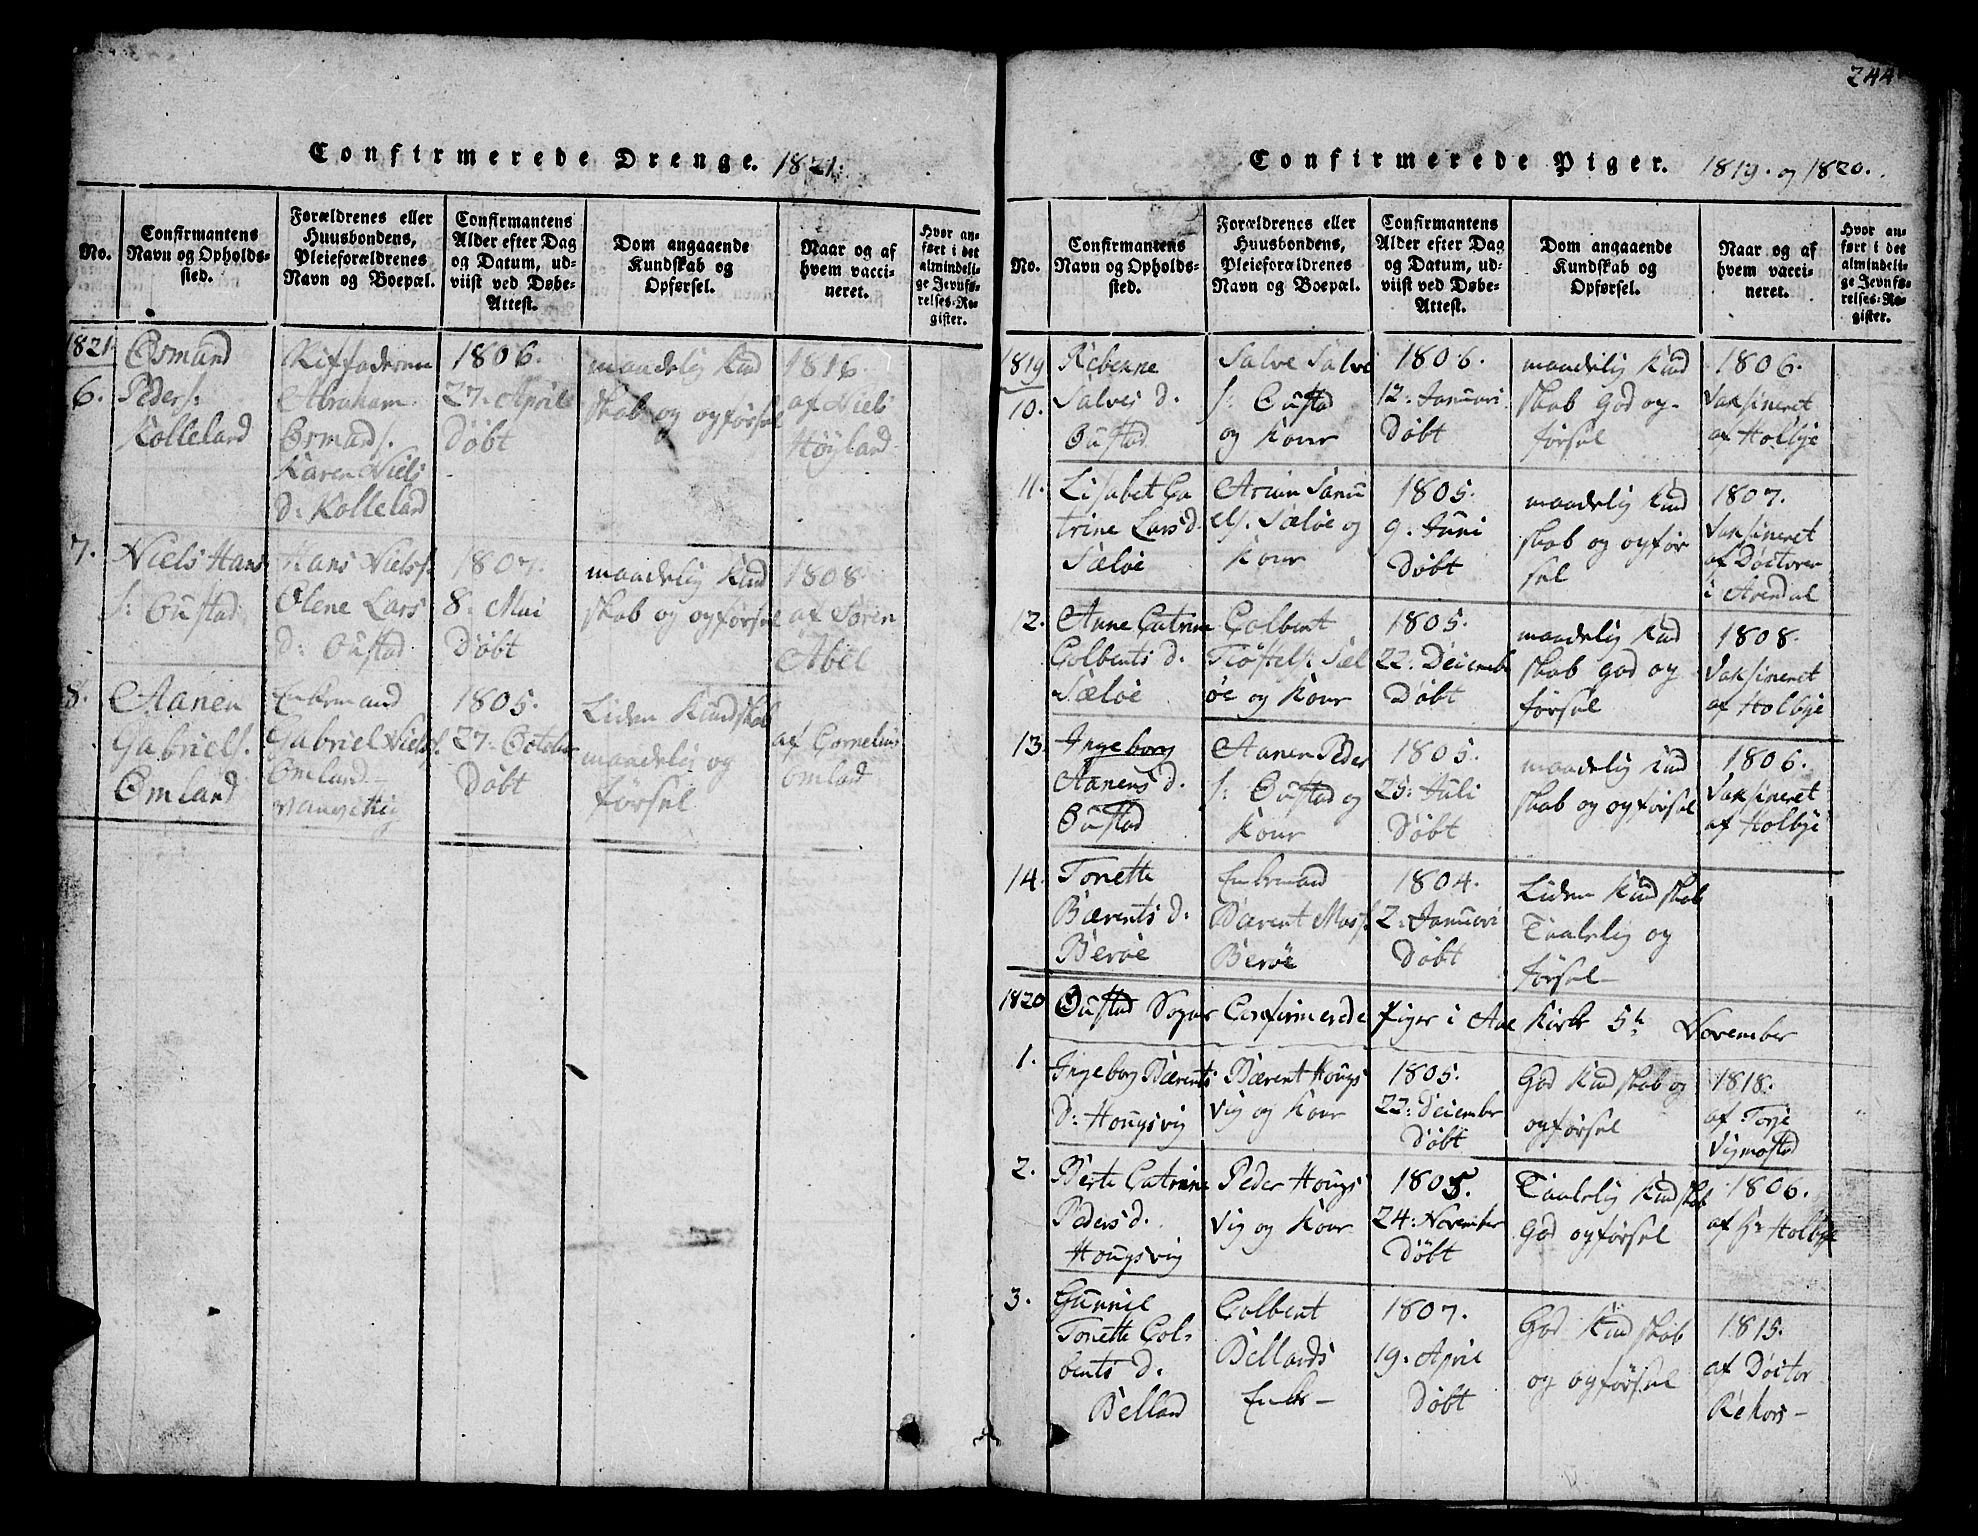 Confirmerede Drenge. 1821.
No.
Confirmantens
Navn og Opholds-
sted.
Forældrenes eller
Huusbondens,
Pleieforældrenes
Navn og Boepæl.
Confirmantens
Alder efter Dag
og Datum, ud-
viist ved Døbe-
Attest.
Dom angaaende
Kundskab og
Opførsel.
Naar og af
hvem vacci-
neret.
Hvor an-
ført i det
almindeli-
ge Jevnfø-
relses-Re-
gister.
1821
6.
Osmund
Peders:
Kolleland
Abraham
Osmunds.
Karen Niels
d: Kolleland
1806.
27. April
Døbt
maadelig Kund
skab og opførsel
1816.
af Niels
Høyland
7.
Niels Hans
s: Oustad
Hans Niels s.
Olene Lars
d: Oustad
1807.
8. Mai
Døbt
maadelig Kund
skab og opførsel
1808
af Søren
Abel
8.
Aanen
Gabriels.
Omland
Enkemand
Gabriel Niels s.
Omland
1805.
27. October
Døbt
Liden Kundskab
maadelig op
førsel
af Cornelius
Omland
244
Confirmerede Piger. 1819. og 1820.
No.
Confirmantens
Navn og Opholds-
sted.
Forældrenes eller
Huusbondens,
Pleieforældrenes
Navn og Boepæl.
Confirmantens
Alder efter Dag
og Datum, ud-
viist ved Døbe-
Attest.
Dom angaaende
Kundskab og
Opførsel.
Naar og af
hvem vacci-
neret.
Hvor an-
ført i det
almindeli-
ge Jevnfø-
relses-Re-
gister.
1819
10.
Rebenne
Salves d.
Oustad
Salve Salve
s: Oustad
og Konr
1806.
12. Januari
Døbt
maadelig Kund
skab God op-
førsel
1806.
Vaksineret
af Holbye
11.
Lisabet Ca
trine Lars d.
Sæløe
Samu
els. Sæløe og
Konr
1805.
9. Juni
Døbt
maadelig Kund
skab og opfør
sel
1807.
Vaksineret
af Doctoren
i Arendal
12.
Anne Catrine
Colbents d.
Sæløe
Colbent
Tiøstels. Sæl
øe og Konr
1805.
22. December
Døbt
maadelig Kund
skab God op
førsel
1808.
Vaksineret
af Holbye
13
Ingeborg
Aanens d.
Oustad
Aanen Peder
s: Oustad og
Konr
1805.
25. Juli
Døbt
maadelig Kund
skab og opførsel
1806.
Vaksineret
af Holbye
14.
Tonette
Bærents d.
Berøe
Enkemand
Bærent Mos s.
Berøe
1804.
2. Januari
Døbt
Liden Kundskab
Taalelig op
førsel
1820
Oustad Sogns Confirmerede Piger i Aae Kirke 5te November
1.
Ingeborg Bærents
d: Hougsvig
Bærent Hougs
vig og Konr
1805.
22. December
Døbt
God Kundskab og
opførsel
1818.
af Torje
Vigmostad
2.
Berte Catrine
Peders d.
Hougsvig
Peder Hougs
vig og Konr
1805.
24. November
Døbt
Taalelig Kundskab
God opførsel
1806.
af Hr Holbye
3.
Gunnil
Tonette Col-
bents d.
Belland
Colbent
Bellands
Enke
1807.
19. April
Døbt
God Kundskab
og opførsel
1815.
af Doctor